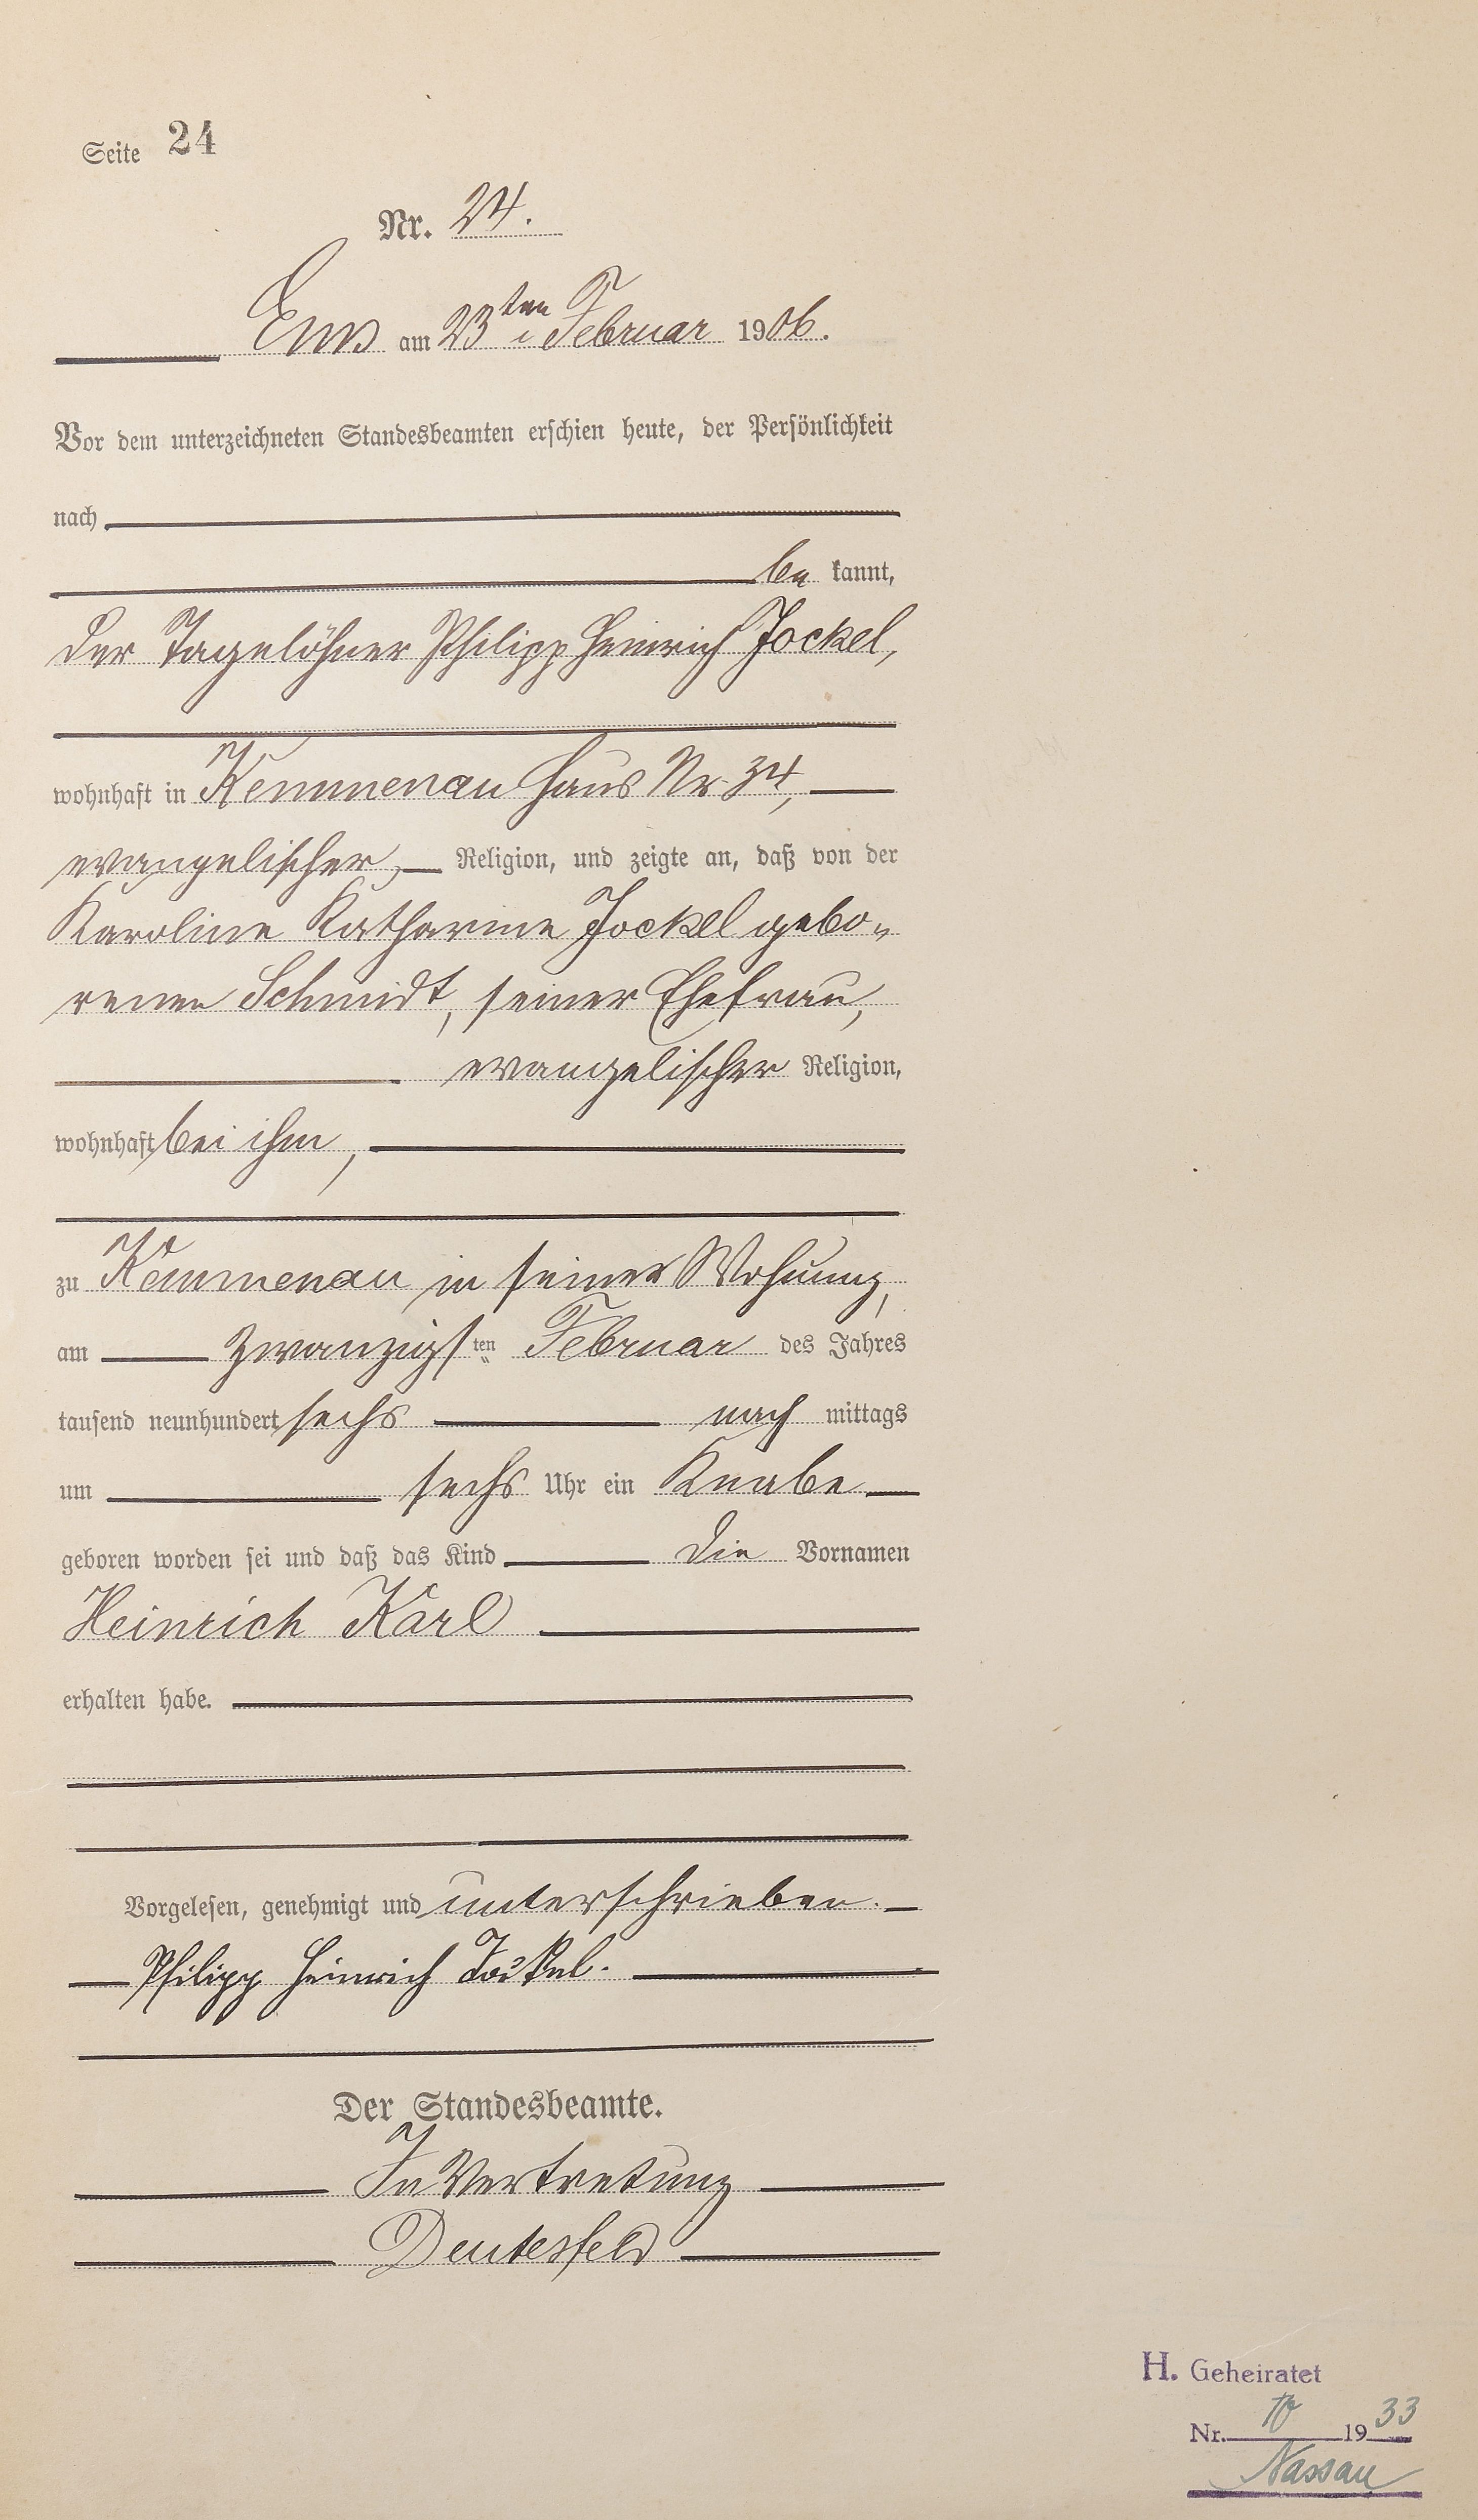 Seite 24
Nr. 24.
Ems am 23ten Februar 1906.
Vor dem unterzeichneten Standesbeamten erschien heute, der Persönlichkeit
nach
be kannt,
der Tagelöhner Philipp Heinrich Jockel,
wohnhaft in Kemmenau Haus Nr. 34,
evangelischer Religion, und zeigte an, daß von der
Karoline Katharine Jockel gebo-
renen Schmidt, seiner Ehefrau,
evangelischer Religion,
wohnhaft bei ihm,
zu Kemmenau in seiner Wohnung,
am zwanzigsten Februar des Jahres
tausend neunhundert sechs nach mittags
um sechs Uhr ein Knabe
geboren worden sei und daß das Kind die Vornamen
Heinrich Karl
erhalten habe.
Vorgelesen, genehmigt und unterschrieben.
Philipp Heinrich Jockel.
Der Standesbeamte.
In Vertretung
Deutesfeld
H. Geheiratet
Nr. 1933
Nassau